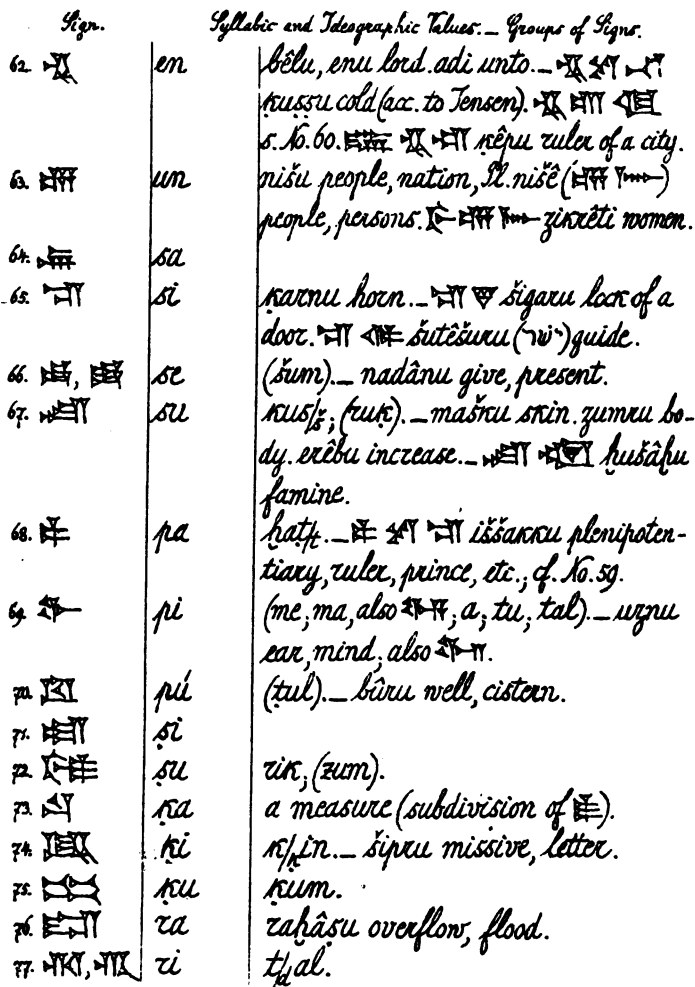 Sign. Syllabic and Ideographic Values. — Groups of Signs.
62. 𒂗 en bêlu, enu lord. adi unto. —
ḳuṣṣu cold (acc. to Jensen).
s. No. 60. ḳêpu ruler of a city.
63. 𒌦 un nišu people, nation, Pl. nišê (𒌦𒈨𒌍)
people, persons. zikrêti women.
64. 𒊓 sa
65. 𒋛 si ḳarnu horn. — šigaru lock of a
door. 𒋛𒁲 šutêšuru (ישר) guide.
66. 𒋧, se (šum). — nadânu give, present.
67. 𒋢 su kus/š; (ruḳ). — mašku skin. zumru bo-
dy. erêbu increase. — ḫušâḫu
famine.
68. 𒉺 pa ḫaṭ/t. — 𒉺𒋼𒋛 iššakku plenipoten-
tiary, ruler, prince, etc.; cf. No. 59.
69. 𒉿 pi (me; ma, also; a; tu; tal). — uznu
ear, mind; also.
70. 𒇥 pú (ṭul). — bûru well, cistern.
71. 𒍢 ṣi
72. 𒍮 ṣu rik; (zum).
73. 𒋡 ḳa a measure (subdivision of).
74. 𒆥 ḳi k/ḳin. — šipru missive, letter.
75. 𒄣 ḳu ḳum.
76. 𒊏 ra raḫâṣu overflow, flood.
77. 𒊑, 𒊑 ri t/dal.